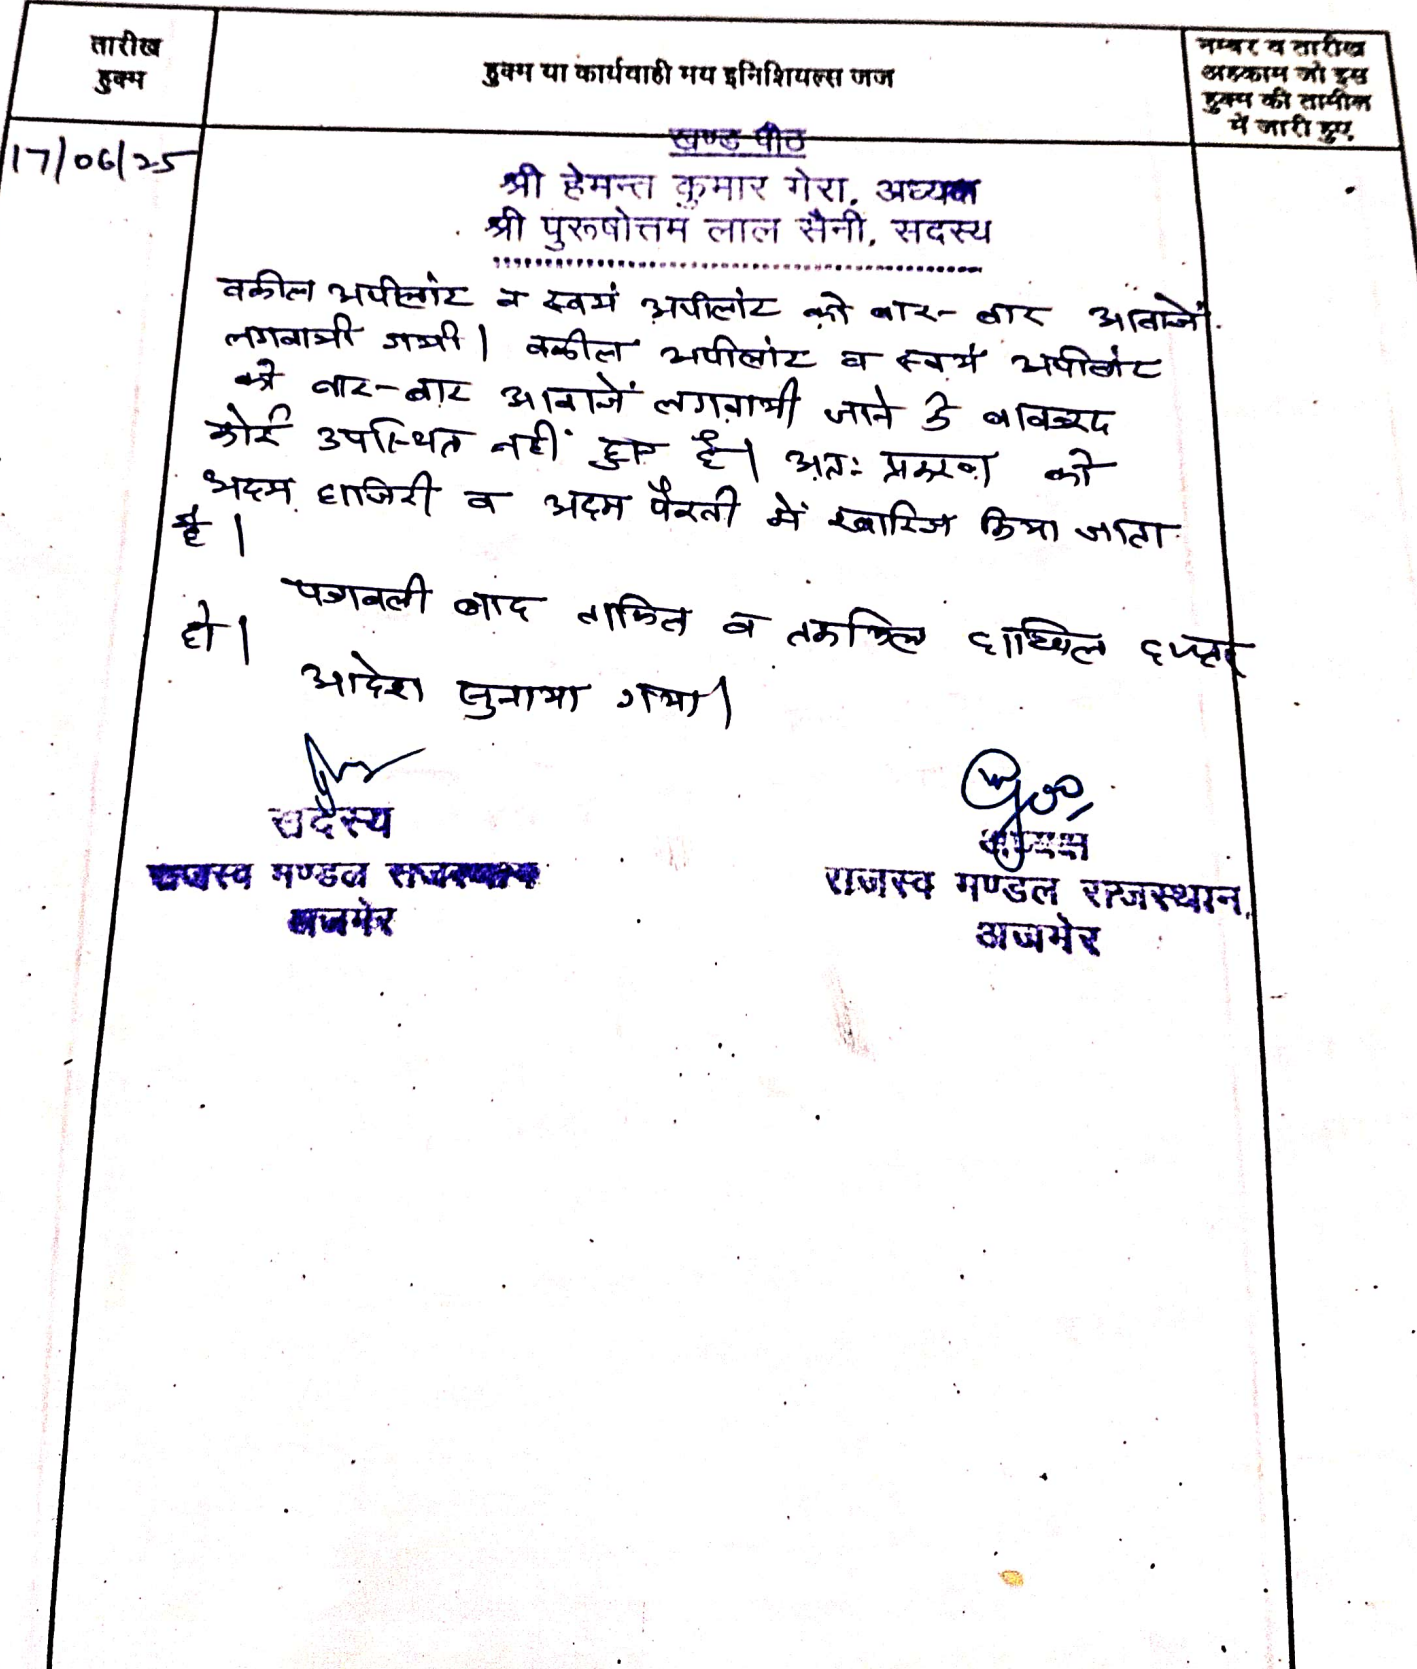 तारीख
हुक्म
हुक्म या कार्यवाही मय इनिशियल्स जज
नम्बर व तारीख
अहकाम जो इस
हुक्म की तामील
में जारी हुए
17/06/25
खण्ड पीठ
श्री हेमन्त कुमार गेरा, अध्यक्ष
श्री पुरूषोत्तम लाल सैनी, सदस्य
वकील अपीलांट व स्वयं अपीलांट को बार-बार आवाजें
लगवायी गयी। वकील अपीलांट व स्वयं अपीलांट
को बार-बार आवाजें लगवायी जाने के बावजूद
कोई उपस्थित नहीं हुए है। अतः प्रकरण को
अदम हाजिरी व अदम पैरवी में खारिज किया जाता
है।
पत्रावली बाद तामील व तकमील दाखिल दफ्तर
हो।
आदेश सुनाया गया।
सदस्य
राजस्व मण्डल राजस्थान
अजमेर
अध्यक्ष
राजस्व मण्डल राजस्थान,
अजमेर